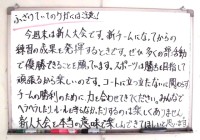 今週末は新人大会です。新チームになってからの
練習の成果を発揮するときです。ぜひ多くの部活動
で優勝できることを願っています。スポーツは勝ちを目指して
頑張るから楽しいのです。コートに立つ立たないに関わらず
チームの勝利のために力を合わせてきてください。みんなで
ヘラヘラしたり、ルールを守らなかったりするのは楽しくありません。
新人大会を本当の意味で楽しんできてほしいと思います。